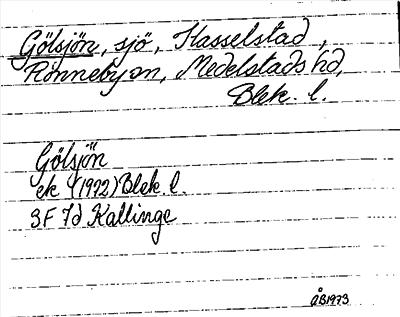 Gölsjön, sjö, Hasselstad,
Ronneby sn, Medelstads hd,
Blek. l.
Gölsjön
ek (1972) Blek. l.
3F 7d Kallinge
ÅB1973